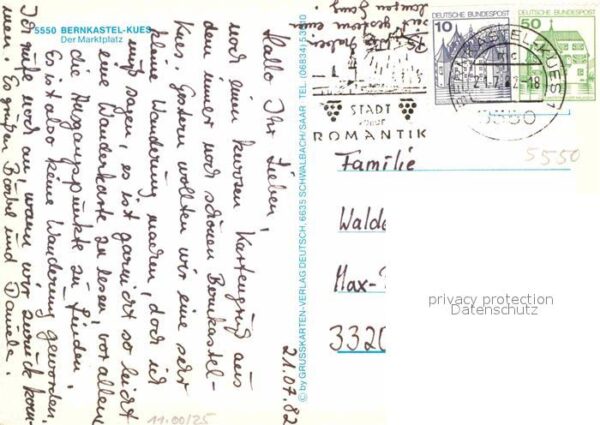 5550 BERNKASTEL-KUES
Der Marktplatz
21.07.82
Hallo Ihr Lieben,
noch einen kurzen Kartengruß aus
dem immer noch schönen Bernkastel-
Kues. Gestern wollten wir eine sehr
kleine Wanderung machen, doch ich
muß sagen, es ist garnicht so leicht
eine Wanderkarte zu lesen, vor allem
die Ausgangspunkte zu finden.
Es ist also keine Wanderung geworden.
Ich rufe noch an, wann wir zurück kom-
men. Es grüßen Bärbel und Daniela.
© by GRUSSKARTEN-VERLAG DEUTSCH, 6635 SCHWALBACH/SAAR TEL. (06834) 53040
DEUTSCHE BUNDESPOST
10
DEUTSCHE BUNDESPOST
50
BERNKASTEL-KUES 1
21.7.82-18
5550
STADT
ROMANTIK
5550
Familie
Walde
Max-
3320
privacy protection
Datenschutz
11.00/25